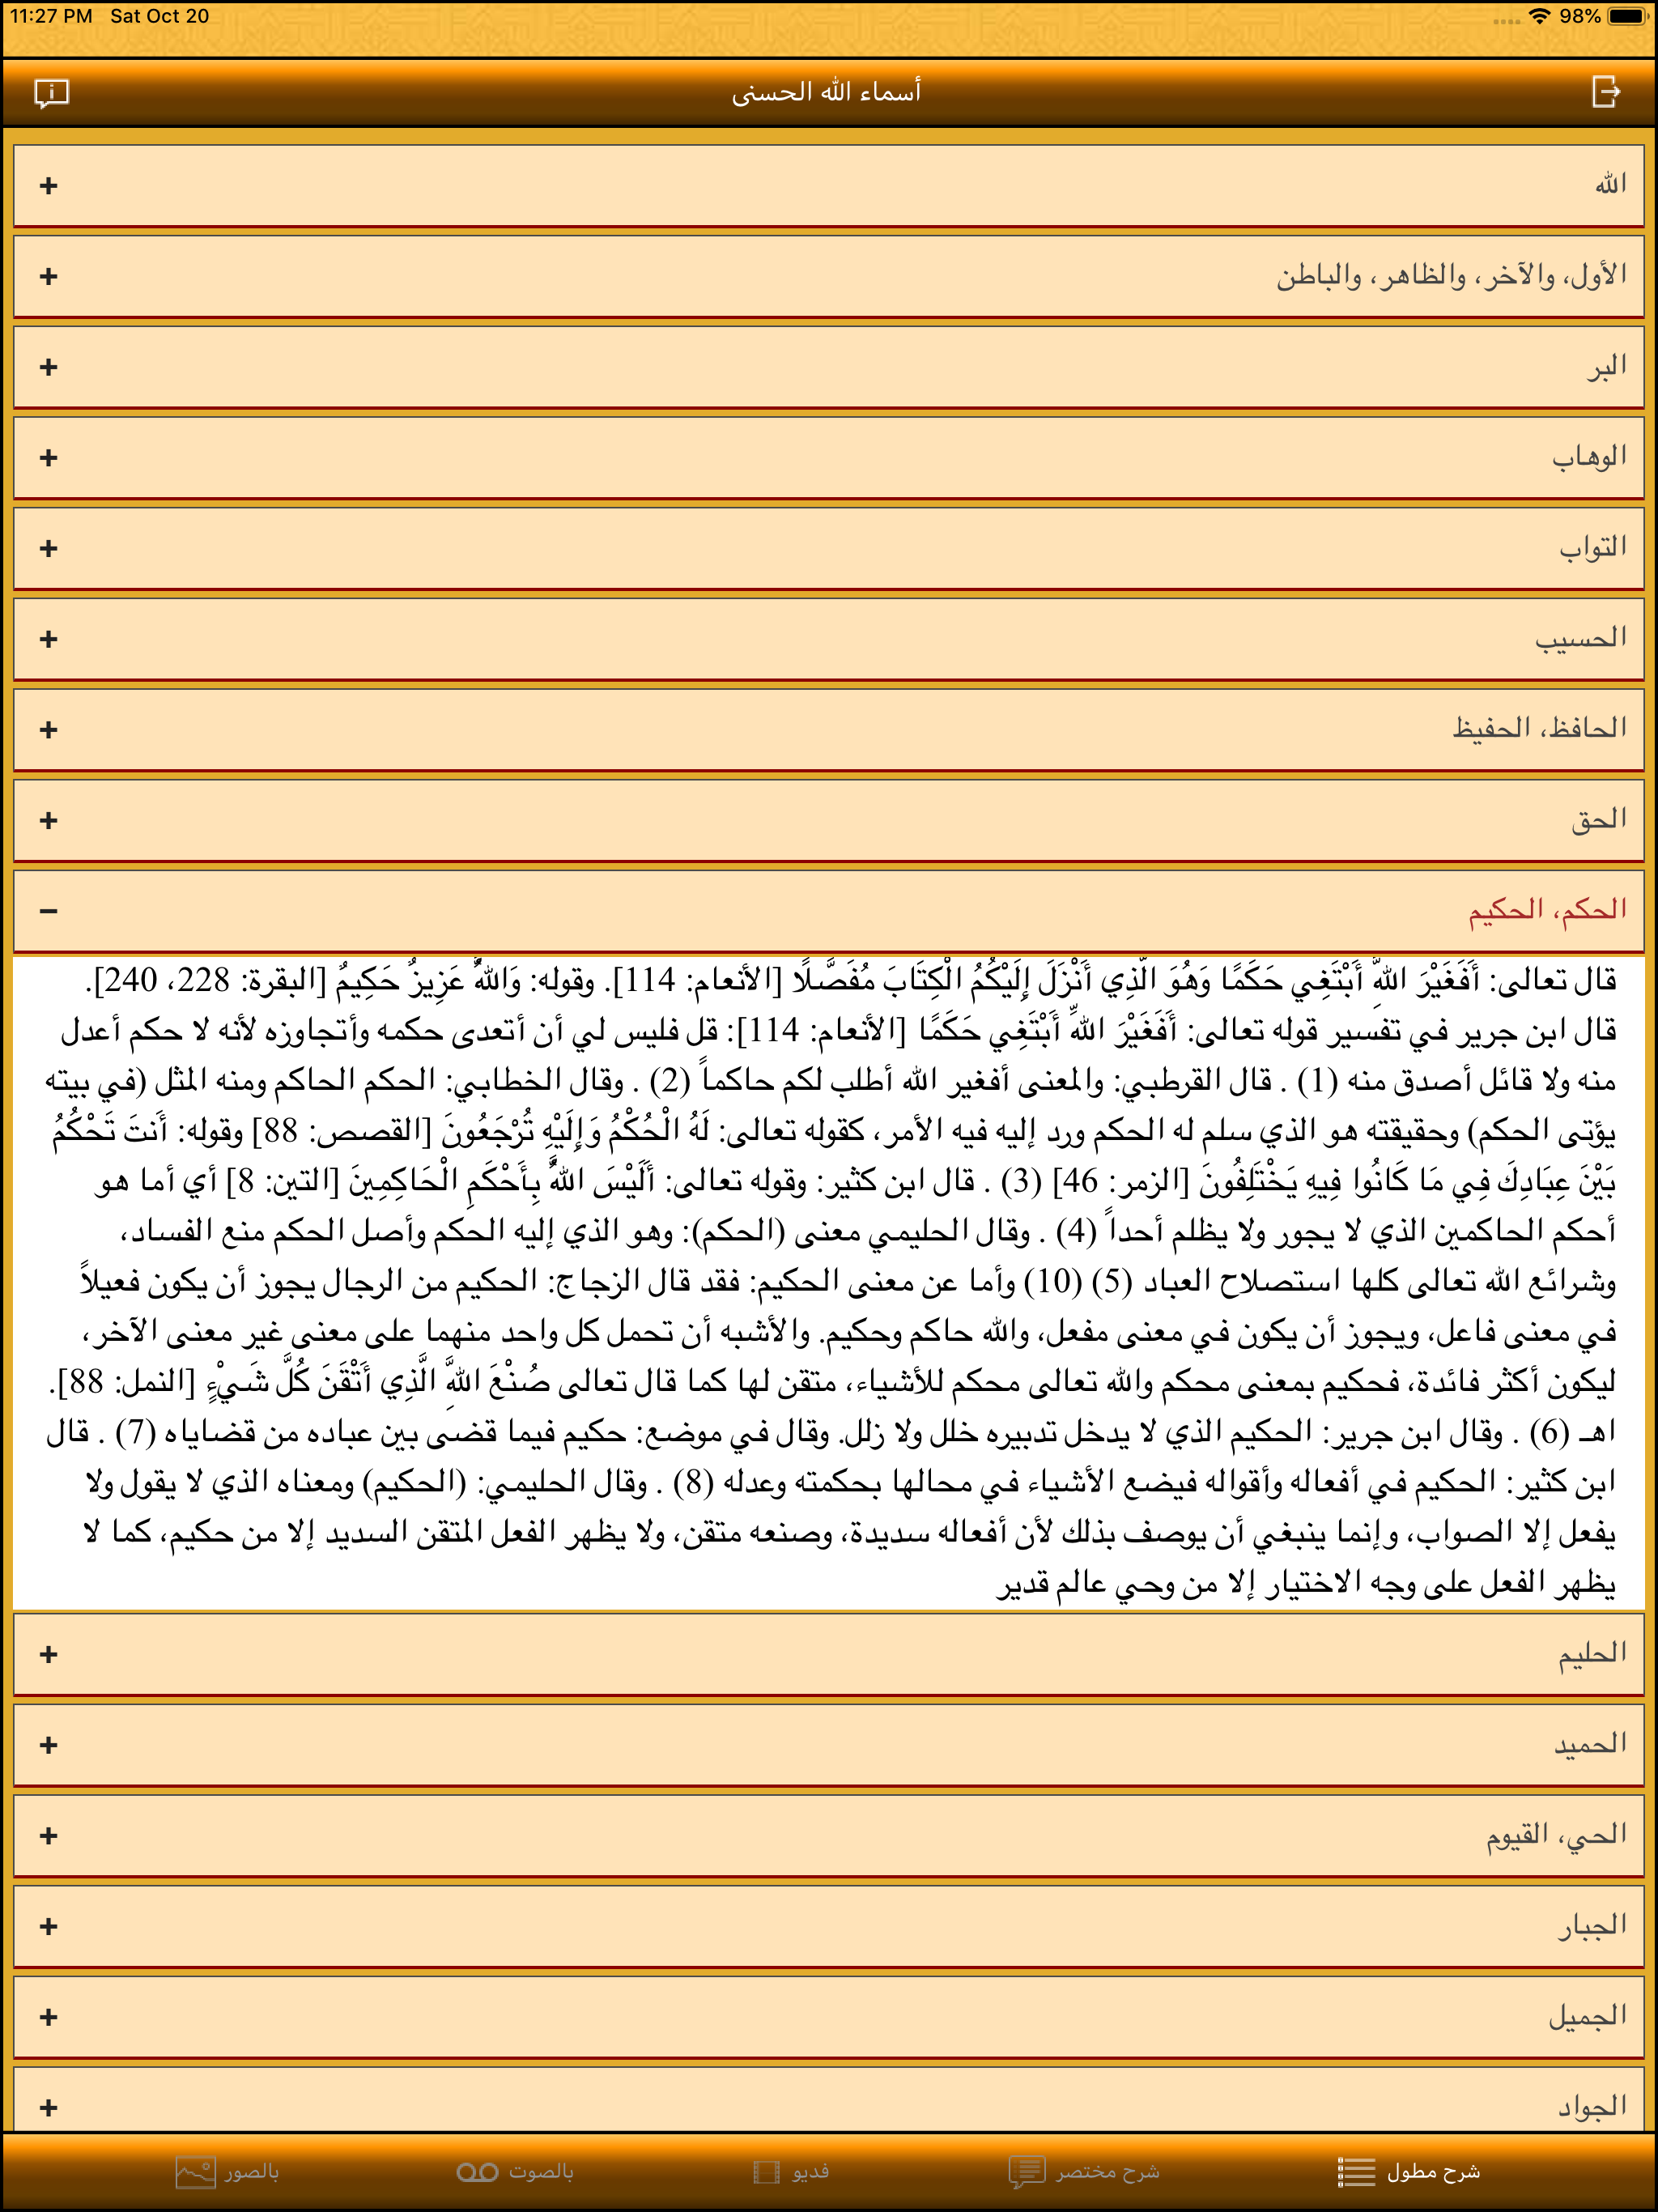 11:27 PM Sat Oct 20 98%
أسماء الله الحسنى
الله +
الأول، والآخر، والظاهر، والباطن +
البر +
الوهاب +
التواب +
الحسيب +
الحافظ، الحفيظ +
الحق +
الحكم، الحكيم −
قال تعالى: أَفَغَيْرَ اللهِ أَبْتَغِي حَكَمًا وَهُوَ الَّذِي أَنْزَلَ إِلَيْكُمُ الْكِتَابَ مُفَصَّلًا [الأنعام: 114]. وقوله: وَاللهُ عَزِيزٌ حَكِيمٌ [البقرة: 228، 240].
قال ابن جرير في تفسير قوله تعالى: أَفَغَيْرَ اللهِ أَبْتَغِي حَكَمًا [الأنعام: 114]: قل فليس لي أن أتعدى حكمه وأتجاوزه لأنه لا حكم أعدل
منه ولا قائل أصدق منه (1) . قال القرطبي: والمعنى أفغير الله أطلب لكم حاكماً (2) . وقال الخطابي: الحكم الحاكم ومنه المثل (في بيته
يؤتى الحكم) وحقيقته هو الذي سلم له الحكم ورد إليه فيه الأمر، كقوله تعالى: لَهُ الْحُكْمُ وَإِلَيْهِ تُرْجَعُونَ [القصص: 88] وقوله: أَنتَ تَحْكُمُ
بَيْنَ عِبَادِكَ فِي مَا كَانُوا فِيهِ يَخْتَلِفُونَ [الزمر: 46] (3) . قال ابن كثير: وقوله تعالى: أَلَيْسَ اللهُ بِأَحْكَمِ الْحَاكِمِينَ [التين: 8] أي أما هو
أحكم الحاكمين الذي لا يجور ولا يظلم أحداً (4) . وقال الحليمي معنى (الحكم): وهو الذي إليه الحكم وأصل الحكم منع الفساد،
وشرائع الله تعالى كلها استصلاح العباد (5) (10) وأما عن معنى الحكيم: فقد قال الزجاج: الحكيم من الرجال يجوز أن يكون فعيلاً
في معنى فاعل، ويجوز أن يكون في معنى مفعل، والله حاكم وحكيم. والأشبه أن تحمل كل واحد منهما على معنى غير معنى الآخر،
ليكون أكثر فائدة، فحكيم بمعنى محكم والله تعالى محكم للأشياء، متقن لها كما قال تعالى صُنْعَ اللهِ الَّذِي أَتْقَنَ كُلَّ شَيْءٍ [النمل: 88].
اهـ (6) . وقال ابن جرير: الحكيم الذي لا يدخل تدبيره خلل ولا زلل. وقال في موضع: حكيم فيما قضى بين عباده من قضاياه (7) . قال
ابن كثير: الحكيم في أفعاله وأقواله فيضع الأشياء في محالها بحكمته وعدله (8) . وقال الحليمي: (الحكيم) ومعناه الذي لا يقول ولا
يفعل إلا الصواب، وإنما ينبغي أن يوصف بذلك لأن أفعاله سديدة، وصنعه متقن، ولا يظهر الفعل المتقن السديد إلا من حكيم، كما لا
يظهر الفعل على وجه الاختيار إلا من وحي عالم قدير
الحليم +
الحميد +
الحي، القيوم +
الجبار +
الجميل +
الجواد +
شرح مطول شرح مختصر فديو بالصوت بالصور